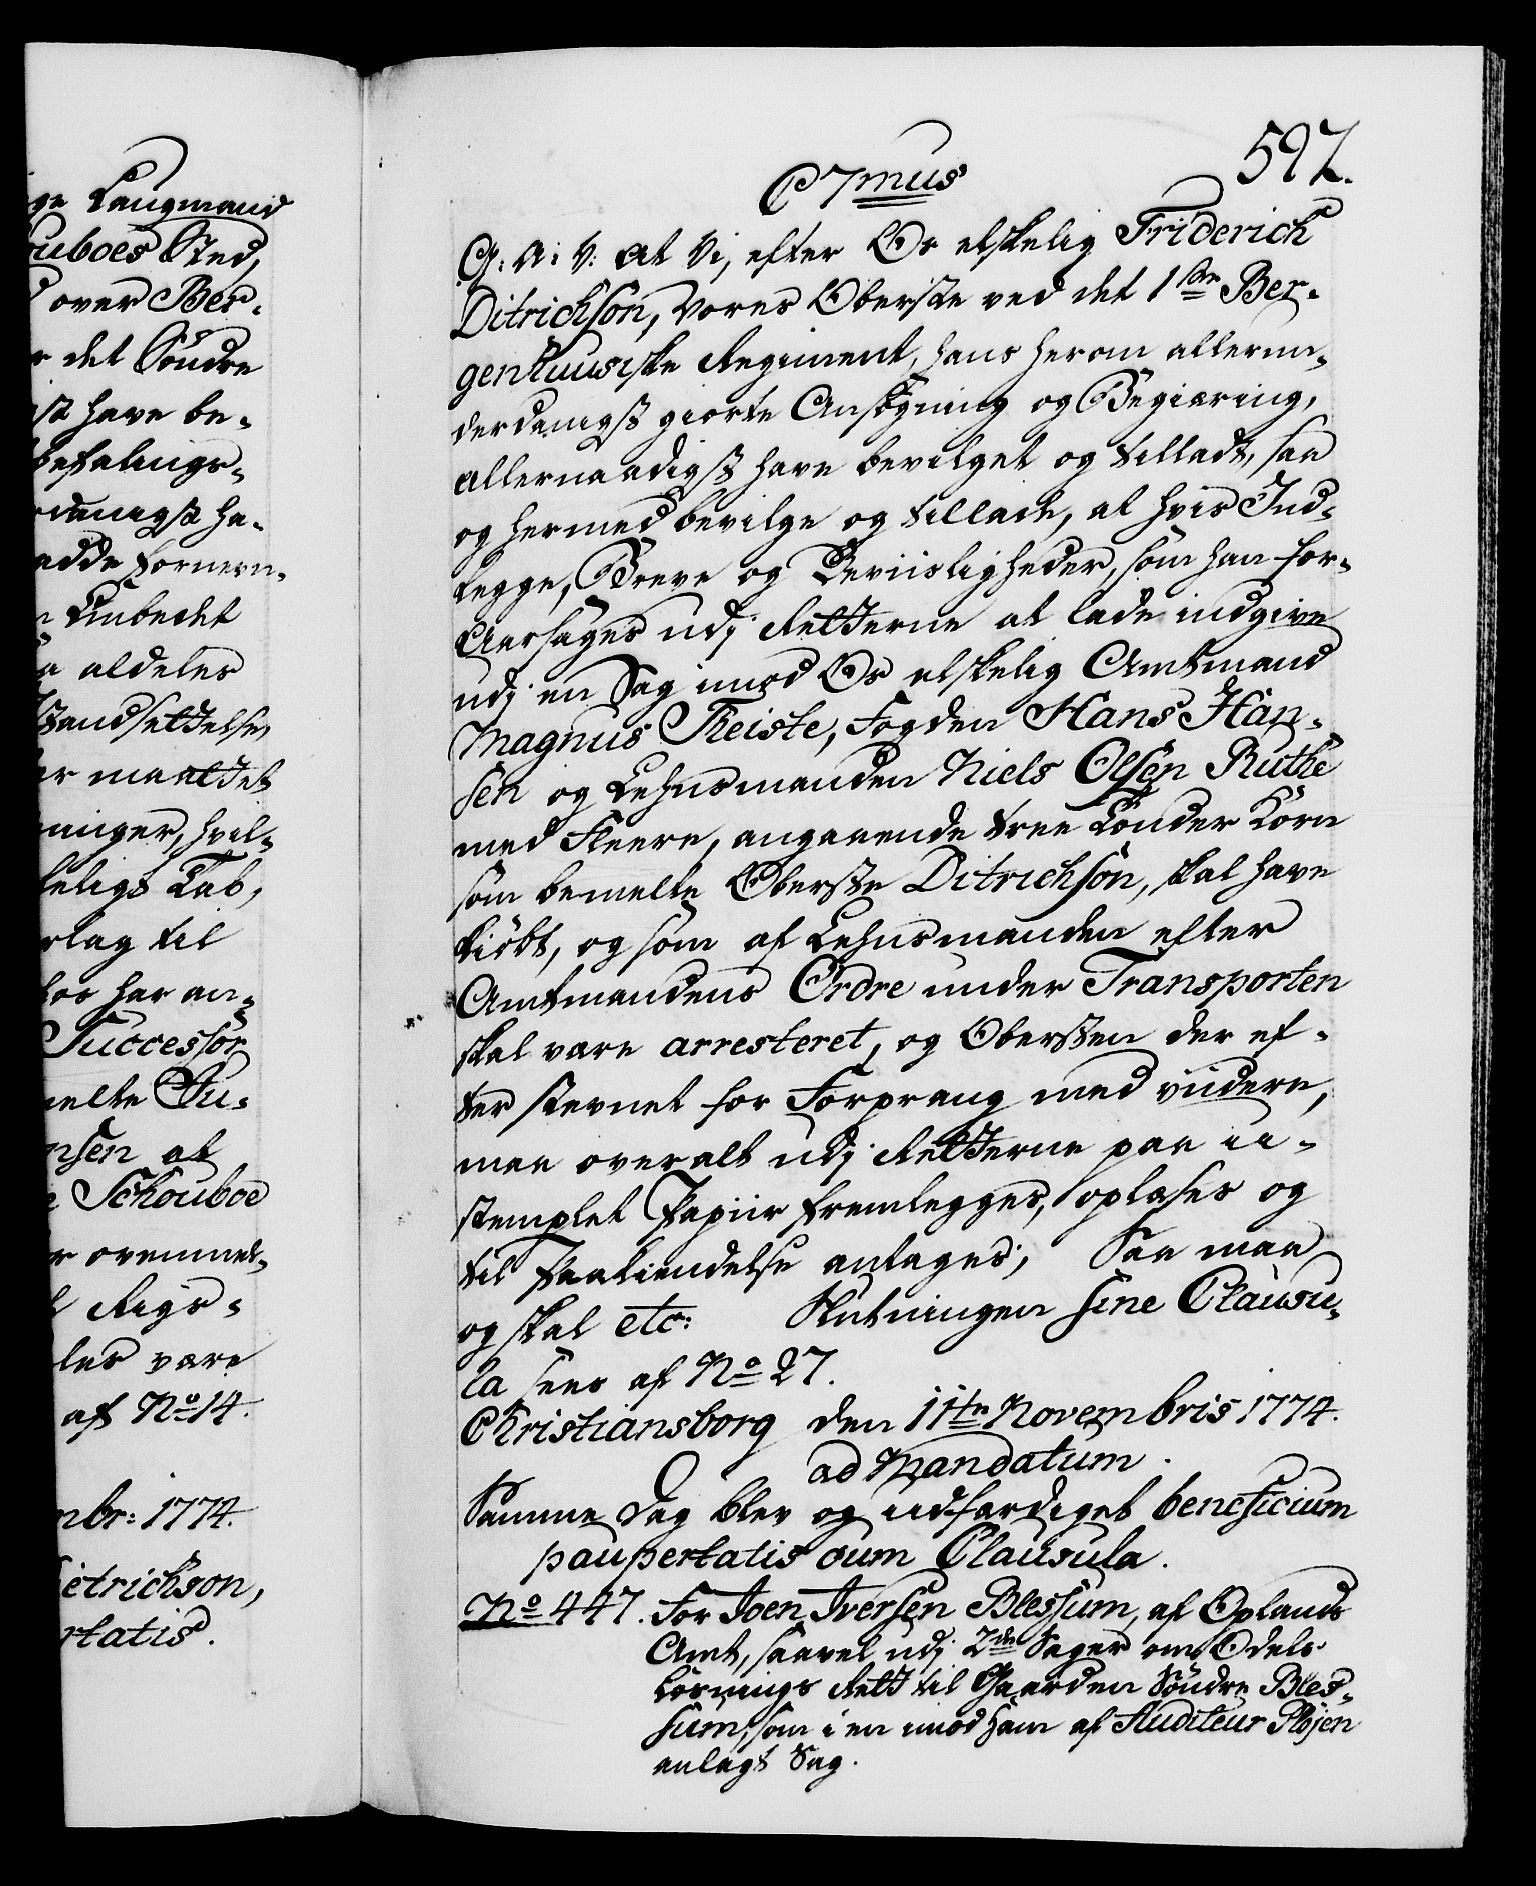 ge Laugmand
ouboes Sted,
over Ber-
r det Söndre
ist have be-
befalings-
danigst ha-
adde fornem-
Embedet
a aldeles
standsettelse
er maattet
ninger, hvil-
keligt Tab,
rlag til
hos har an-
Successor
melte Su-
nsen at
e Schouboe
r ovenmel-
Regs-
les være
af No 14.
mbr: 1774.
ietrichson,
rtatis.
592.
C 7mus
G: A: V: At Vi, efter Os elskelig Friderich
Ditrichson, Vores Oberste ved det 1ste Ber-
genhuusiske Regiment, hans herom allerun-
derdanigst giorte Ansøgning og Begiæring,
allernaadigst have bevilget og tilladt, saa
og hermed bevilge og tillade, at hvis Ind-
legge, Breve og Beviisligheder, som han for-
aarsages udj Retterne at lade indgive
udj en Sag imod Os elskelig Amtmand
Magnus Theiste, Fogden Hans Han-
sen og Lehnsmanden Niels Olsen Ruthe
med Fleere, angaaende tree Tönder Korn
som bemelte Oberste Ditrichson, skal have
kiöbt, og som af Lehnsmanden efter
Amtmandens Ordre under Transporten
skal være arresteret, og Obersten der ef-
ter stevnet for Forprang med viidere,
maa overalt udj Retterne paa u-
stemplet Papiir fremlegges, oplæses og
til Paakiendelse antages; Saa maa
og skal etc: Slutningen sine Clausu-
la sees af No 27.
Christiansborg den 11te Novembris 1774.
ad Mandatum.
Samme Dag blev og udfærdiget beneficium
paupertatis cum Clausula.
No 447. For Joen Iversen Blessum, af Oplands
Amt, saavel udj 2de Sager om Odels
Løsnings Rett til Gaarden Söndre Bles-
sum, som i en imod ham af Auditeur Pløjen
anlagt Sag.